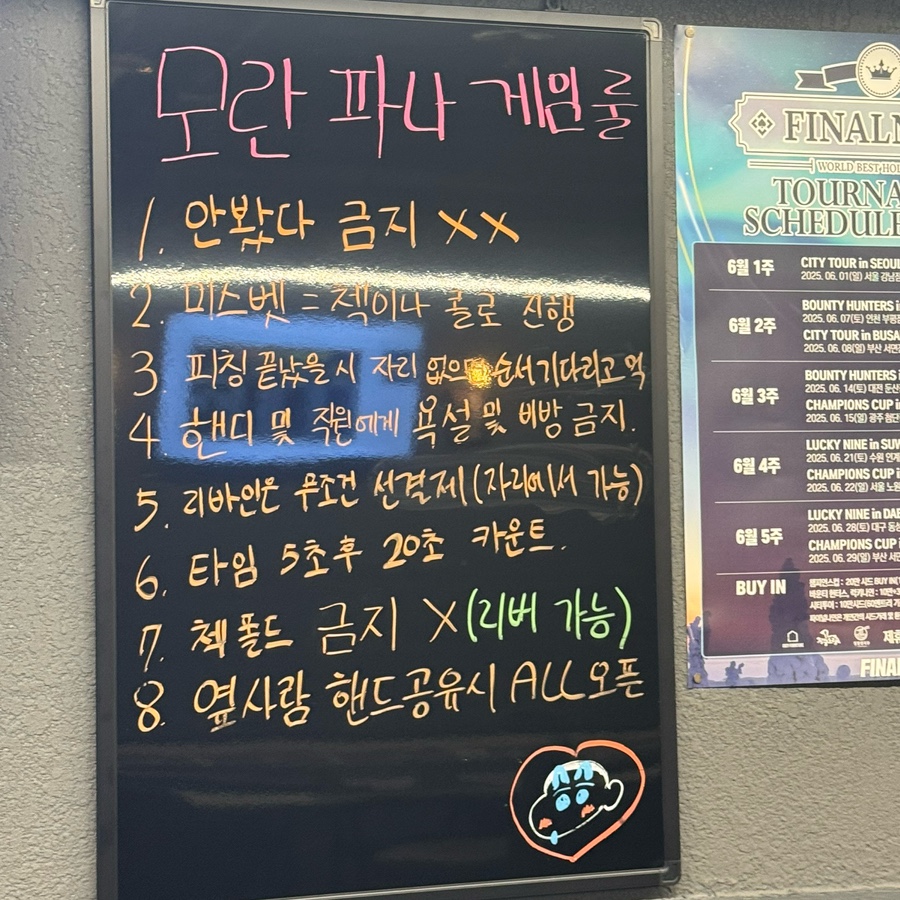 모란 파나 게임 룰
1. 안봤다 금지 XX
2. 미스벳 = 책이나 콜로 진행
3 피칭 끝났을 시 자리 없으 순서기다리고 먹
4. 핸디 및 직원에게 욕설 및 비방 금지.
5. 리바인은 무조건 선결제 (자리에서 가능)
6. 타임 5초후 20초 카운트.
7. 첵폴드 금지 X (리버 가능)
8. 옆사람 핸드공유시 ALL오픈
FINALN
WORLD BEST HOL
TOURNA
SCHEDULE
6월 1주
CITY TOUR in SEOUL
2025. 06. 01(일) 서울 강남
6월 2주
BOUNTY HUNTERS i
2025. 06. 07(토) 인천 부평
CITY TOUR in BUSA
2025. 06. 08(일) 부산 서면
6월 3주
BOUNTY HUNTERS i
2025. 06. 14(토) 대전 둔산
CHAMPIONS CUP i
2025. 06. 15(일) 광주 첨단
6월 4주
LUCKY NINE in SUW
2025. 06. 21(토) 수원 인계
CHAMPIONS CUP i
2025. 06. 22(일) 서울 노원
6월 5주
LUCKY NINE in DAE
2025. 06. 28(토) 대구 동성
CHAMPIONS CUP i
2025. 06. 29(일) 부산 서면
BUY IN
챔피언스컵 : 20만 시드 BUY IN
바운티 헌터스, 럭키나인 : 10만
시티투어 : 10만시드
제휴
FINAL